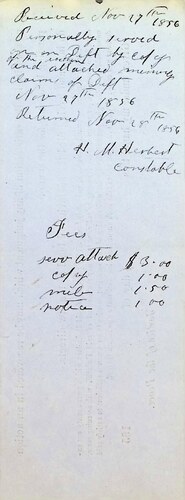 Received Nov 27th 1856
Personally served
on Deft by copy
of the within
and attached money
claims of Deft
Nov 27th 1856
Returned Nov 28th 1856
H. M. Herbert
Constable
Fees
serv attach $3.00
copy 1.00
mile 1.50
notice 1.00